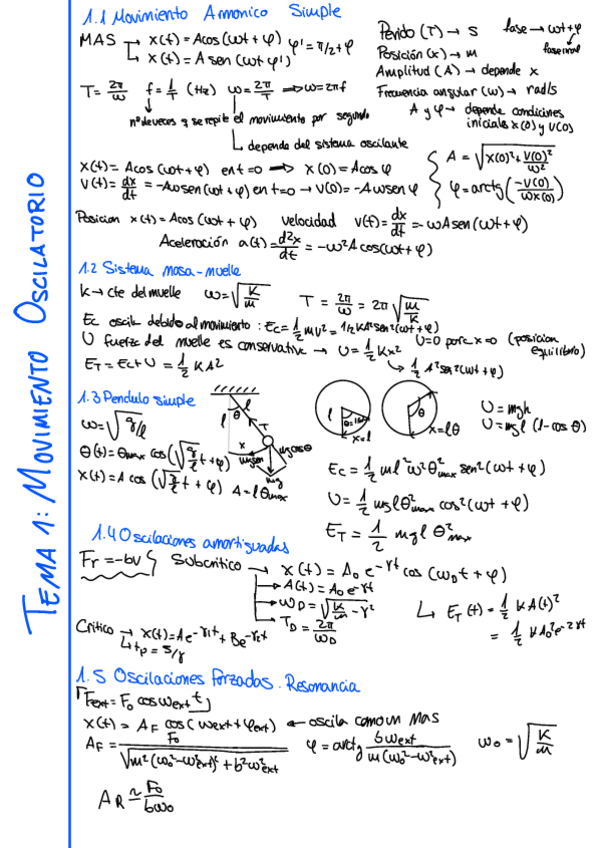 TEMA 1: MOVIMIENTO OSCILATORIO
1.1 Movimiento Armonico Simple
MAS → x(t) = A cos(ωt + φ) φ' = π/2 + φ
↳ x(t) = A sen (ωt φ')
Periodo (T) → s fase → ωt + φ
fase inicial
Posición (x) → m
Amplitud (A) → depende x
Frecuencia angular (ω) → rad/s
A y φ → depende condiciones
iniciales x(0) y v(0)
T = 2π/ω f = 1/T (Hz) ω = 2π/T ⇒ ω = 2πf
nº de veces q se repite el movimiento por segundo
↳ depende del sistema oscilante
x(t) = A cos (ωt + φ) en t=0 ⇒ x(0) = A cos φ
v(t) = dx/dt = -Aω sen(ωt + φ) en t=0 → v(0) = -Aω sen φ
A = √(x(0)² + v(0)²/ω²)
φ = arctg(-v(0)/ωx(0))
Posicion x(t) = A cos (ωt + φ) velocidad v(t) = dx/dt = -ωA sen(ωt + φ)
Aceleración a(t) = d²x/dt = -ω²A cos(ωt + φ)
1.2 Sistema masa-muelle
k → cte del muelle ω = √(k/m) T = 2π/ω = 2π √(m/k)
Ec oscila debido al movimiento : Ec = 1/2 mv² = 1/2 KA² sen²(ωt + φ)
U fuerza del muelle es conservativa → U = 1/2 Kx² U=0 para x=0 (posicion equilibrio)
↳ 1/2 A² sen²(ωt + φ)
E_T = Ec + U = 1/2 KA²
1.3 Pendulo simple
ω = √(g/l)
θ(t) = θmax cos(√(g/l) t + φ)
x(t) = A cos (√(g/l) t + φ) A = l θmax
l
θ
T
x
mg cosθ
mg
l
x=l
θ
x=lθ
U = mgh
U = mgl (1-cos θ)
Ec = 1/2 ml²ω²θ²max sen²(ωt + φ)
U = 1/2 mglθ²max cos²(ωt + φ)
E_T = 1/2 mgl θ²max
1.4 Oscilaciones amortiguadas
Fr = -bv Subcritico → x(t) = A₀ e^-γt cos (ω_D t + φ)
→ A(t) = A₀ e^-γt
→ ω_D = √(k/m - γ²)
→ T_D = 2π/ω_D
↳ E_T (t) = 1/2 KA(t)²
= 1/2 KA₀² e^-2γt
Critico → x(t) = Ae^-γ₁t + Be^-γ₂t
↳ tp = 5/γ
1.5 Oscilaciones forzadas. Resonancia
Fext = F₀ cos ωext t
x(t) = A_F cos( ωext + φext) ← oscila como un MAS
A_F = F₀/√(m²(ω₀²-ω²ext)² + b²ω²ext) φ = arctg bωext/m(ω₀²-ω²ext) ω₀ = √(K/m)
A_R ≃ F₀/bω₀